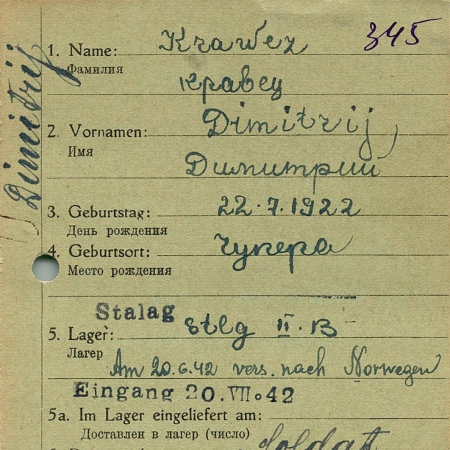 345
1. Name: Krawez
Фамилия
кравец
Dimitrij
2. Vornamen: Dimitrij,
Имя
Димитрий
3. Geburtstag: 22.7.1922
День рождения
4. Geburtsort: чупера
Место рождения
Stalag
5. Lager: Stlg II.B
Лагер
Am 20.6.42 vers. nach Norwegen
Eingang 20.VII.42
5a. Im Lager eingeliefert am:
Доставлен в лагер (число)
Soldat